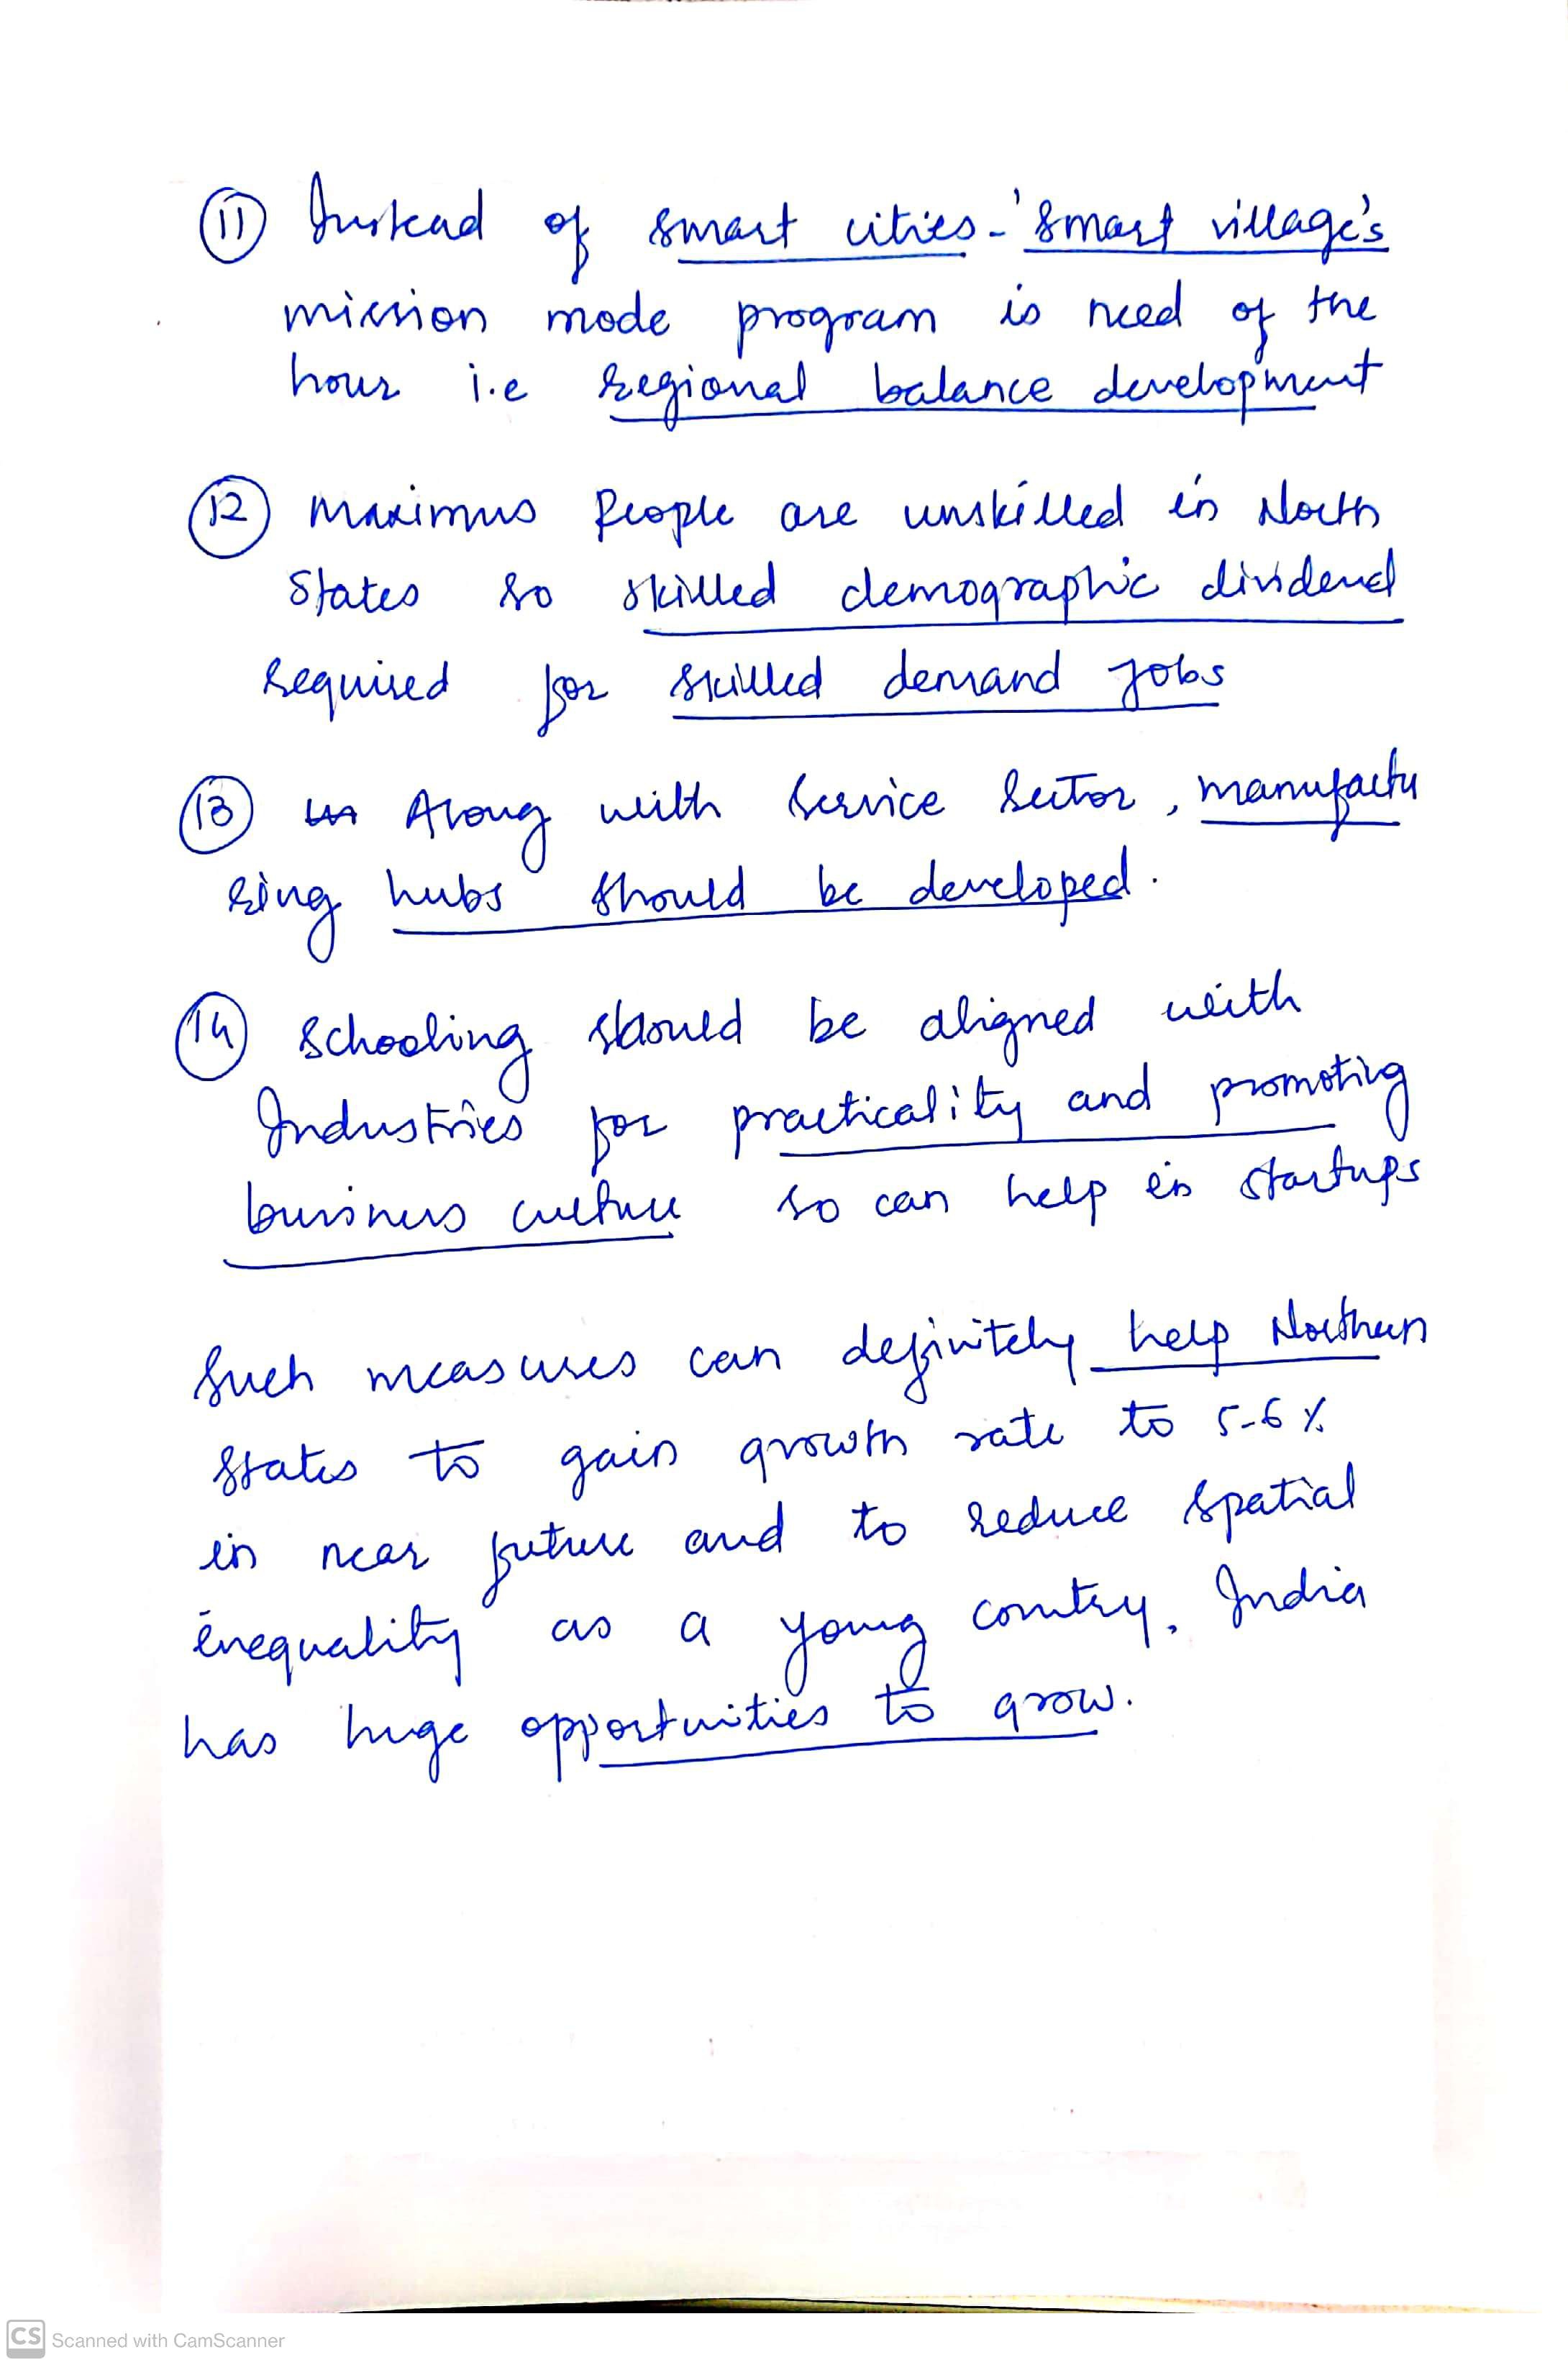 11 Instead of smart cities - 'Smart village's
mission mode program is need of the
hour i.e regional balance development
12 maximus People are unskilled in North
States so skilled demographic dividend
required for skilled demand jobs
13 Along with Service Sector, manufactu
ring hubs should be developed.
14 Schooling should be aligned with
Industries for practicality and promoting
business culture so can help in startups
Such measures can definitely help Northern
States to gain growth rate to 5-6%
in near future and to reduce spatial
inequality as a young country, India
has huge opportunities to grow.
CS Scanned with CamScanner